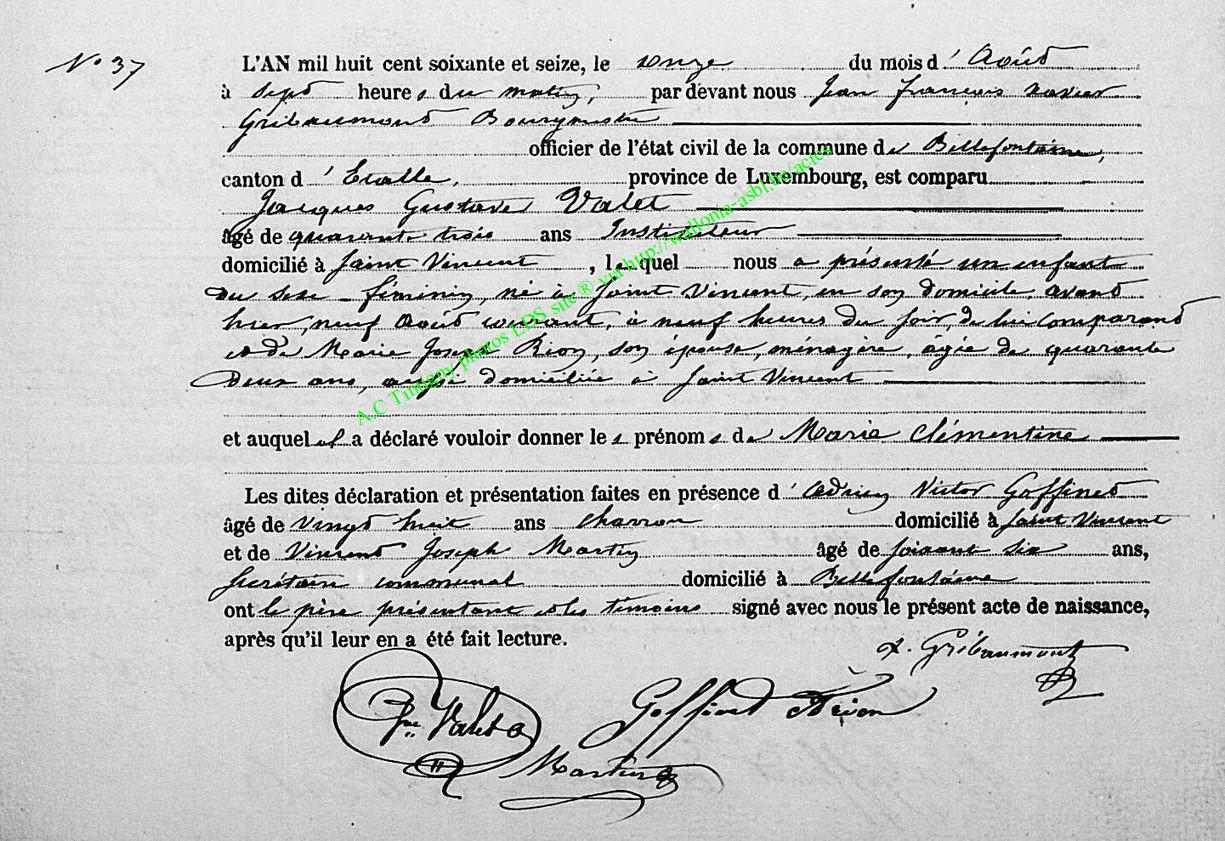 N° 37
L'AN mil huit cent soixante et seize, le onze du mois d'Août
à sept heures du matin, par devant nous Jean François Xavier
Gribaumont Bourgmestre
officier de l'état civil de la commune de Bellefontaine,
canton d'Etalle, province de Luxembourg, est comparu
Jacques Gustave Valet
âgé de quarante trois ans Instituteur
domicilié à Saint Vincent, lequel nous a présenté un enfant
du sexe féminin, né à Saint Vincent, en son domicile, avant
hier, neuf Août courant, à neuf heures du soir, de lui comparant
et de Marie Josèphe Rion, son épouse, ménagère, agée de quarante
deux ans, aussi domiciliée à Saint Vincent
et auquel il a déclaré vouloir donner les prénoms de Marie Clémentine
Les dites déclaration et présentation faites en présence d'Adrien Victor Goffinet
âgé de vingt huit ans charron domicilié à Saint Vincent
et de Vincent Joseph Martin âgé de soixant six ans,
Secrétaire communal domicilié à Bellefontaine
ont le père présentant et les témoins signé avec nous le présent acte de naissance,
après qu'il leur en a été fait lecture.
X. Gribaumont
Valet
Goffinet Adrien
Martin
A.C Tintigny photos EDS site ® via http://wallonia-asbl.be/actes